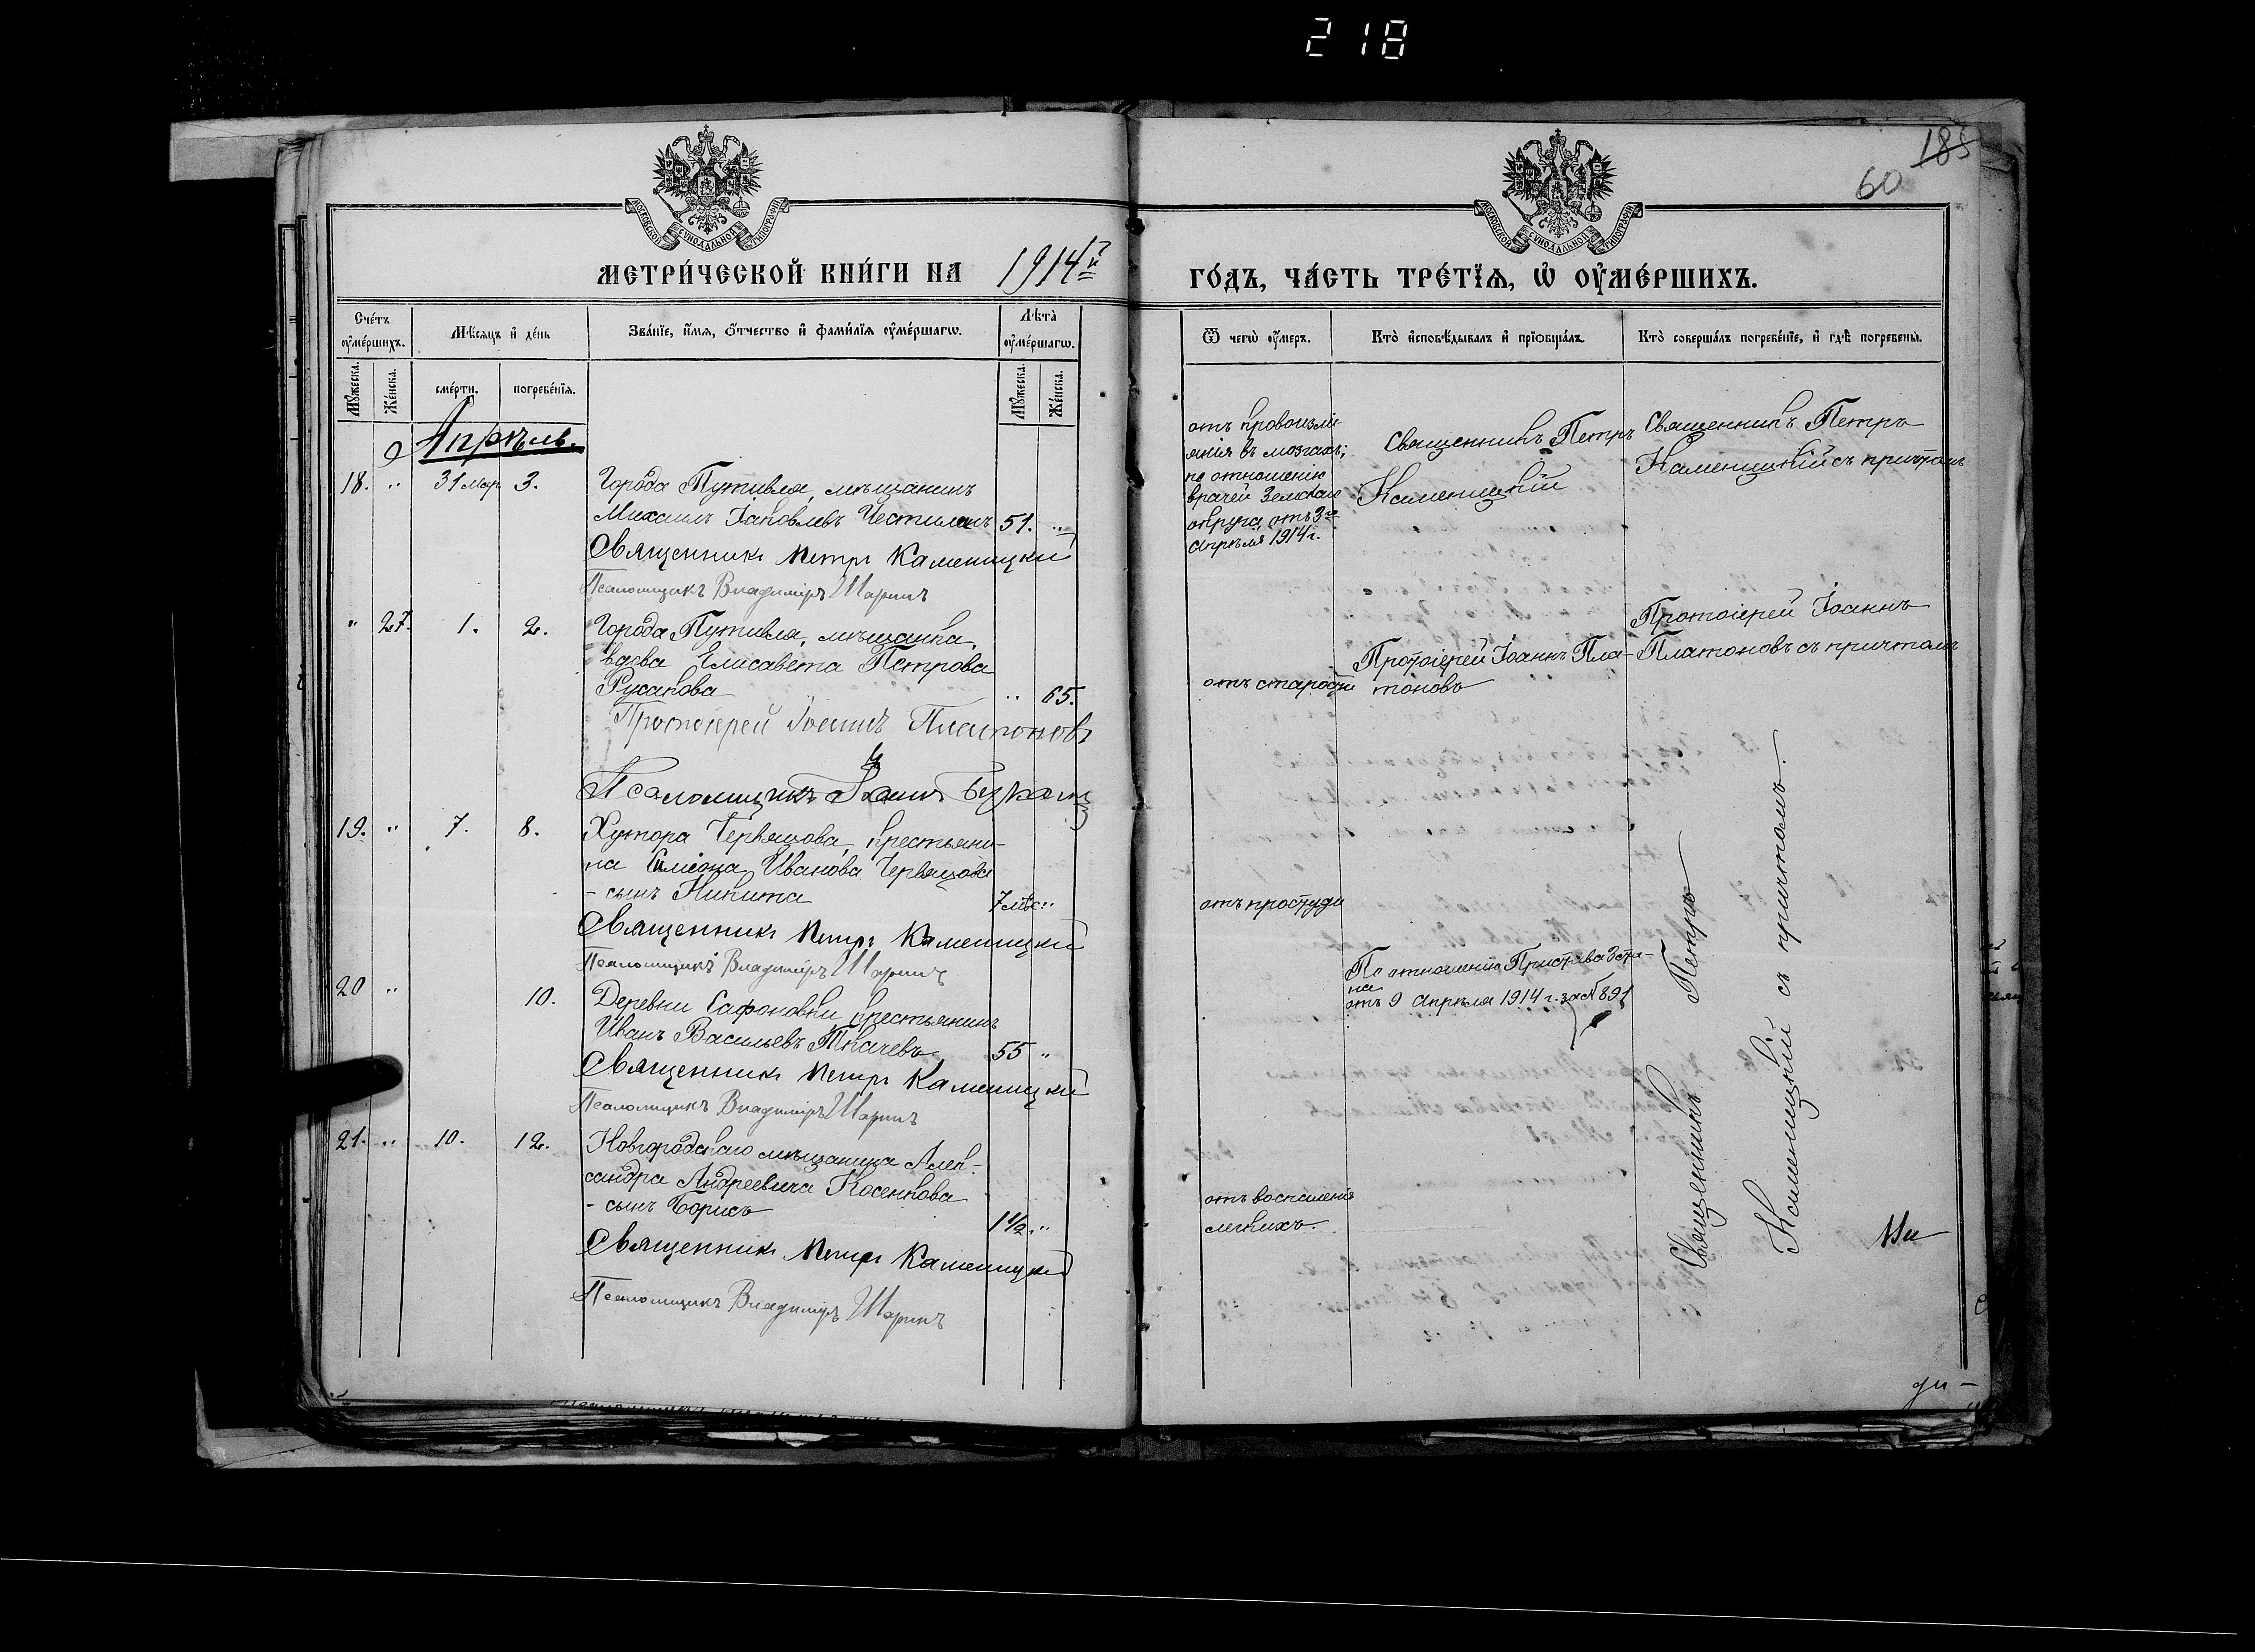 218
185
60
МОСКОВСКОЙ СУНОДАЛЬНОЙ ТИПОГРАФІИ
МОСКОВСКОЙ СУНОДАЛЬНОЙ ТИПОГРАФІИ
МЕТРИ́ЧЕСКОЙ КНИ́ГИ НА 1914й
ГО́ДЪ, ЧА́СТЬ ТРЕ́ТЇѦ, Ѡ҆ ОУ҆МЕ́РШИХЪ.
Сче́тъ оу҆ме́ршихъ.
Мꙋ́жеска.
Же́нска.
Мѣ́сѧцъ и҆ де́нь
сме́рти.
погребе́нїѧ.
Зва́нїе, и҆́мѧ, ѻ҆́тчество и҆ фами́лїѧ оу҆ме́ршагѡ.
Лѣ́та̀ оу҆ме́ршагѡ.
Мꙋ́жеска.
Же́нска.
Ѿ чегѡ̀ оу҆́меръ.
Кто̀ и҆сповѣ́дывалъ и҆ прїѻбща́лъ.
Кто̀ соверша́лъ погребе́нїе, и҆ гдѣ̀ погребены̀.
Апрѣль.
18. " 31 мар 3.
Города Путивля, мѣщанинъ
Михаилъ Іаковлевъ 51. "
Священникъ Петръ Каменицкий
Псаломщикъ Владиміръ Шаринъ
отъ кровоизлі-
янія въ мозгахъ;
по отношенію
врачей Земскаго
округа, отъ 3го
Апрѣля 1914 г.
Священникъ Петръ
Каменицкій
Священникъ Петръ
Каменицкій съ причтомъ
" 27. 1. 2.
Города Путивля, мѣщанка,
вдова Елисавета Петрова
Русакова " 65.
Протоіерей Іоаннъ Платоновъ
Псаломщикъ Іоаннъ
отъ старости
Протоіерей Іоаннъ Пла-
тоновъ
Протоіерей Іоаннъ
Платоновъ съ причтомъ
19. " 7. 8.
Хутора Червяцова, крестьяни-
на Симеона Иванова Червяцова
- сынъ Никита 7 мѣс "
Священникъ Петръ Каменицкий
Псаломщикъ Владиміръ Шаринъ
отъ простуди
20 " 10.
Деревни Сафоновки, крестьянинъ
Иванъ Васильевъ Ткачевъ 55 "
Священникъ Петръ Каменицкий
Псаломщикъ Владиміръ Шаринъ
По отношенію Пристава 3 ста-
на
отъ 9 Апрѣля 1914 г. за № 891
21. " 10. 12.
Новгородскаго мѣщанина Алек-
сандра Андреевича Косенкова
- сынъ Борисъ 1 1/2. "
Священникъ Петръ Каменицкий
Псаломщикъ Владиміръ Шаринъ
отъ воспаленія
легкихъ.
Священникъ Петръ
Каменицкій съ причтомъ.